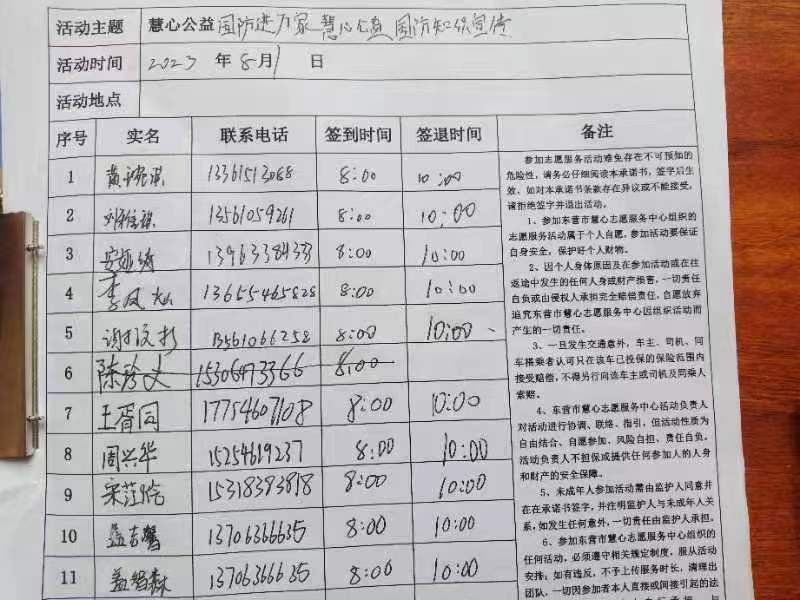 活动主题 慧心公益 国防进万家 慧心公益 国防知识宣传
活动时间 2023 年 8月1 日
活动地点
序号 实名 联系电话 签到时间 签退时间 备注
1 13361513088 8:00 10:00
2 13561059261 8:00 10:00
3 安娅绮 13963384333 8:00 10:00
4 李凤 13655465828 8:00 10:00
5 谢汶杉 13561066258 8:00 10:00
6 陈 15306473366 8:00
7 王胥同 17754607108 8:00 10:00
8 周兴华 15254619237 8:00 10:00
9 宋 15318393818 8:00 10:00
10 孟吉馨 13706366635 8:00 10:00
11 孟智森 13706366635 8:00 10:00
参加志愿服务活动难免存在不可预知的
危险性，请务必仔细阅读本承诺书，签字后生
效。如对本承诺书条款存在异议或不能接受，
请拒绝签字并退出活动。
1、参加东营市慧心志愿服务中心组织的
志愿服务活动属于个人自愿。参加活动要保证
自身安全，保护好个人财物。
2、因个人身体原因及在参加活动或在往
返途中发生的任何人身或财产损害，一切责任
自负或由侵权人承担完全赔偿责任，自愿放弃
追究东营市慧心志愿服务中心因组织活动而
产生的一切责任。
3、一旦发生交通意外，车主、司机、同
车搭乘者认可只在该车已投保的保险范围内
接受赔偿，不得另行向该车主或司机及同乘人
索赔。
4、东营市慧心志愿服务中心活动负责人
对活动进行协调、联络、指引，但活动性质为
自由结合、自愿参加、风险自担、责任自负。
活动负责人不担保或提供任何参加人的人身
和财产的安全保障。
5、未成年人参加活动需由监护人同意并
在在承诺书签字，并注明监护人与未成年人关
系，如发生任何意外，一切责任由监护人承担。
6、参加东营市慧心志愿服务中心组织的
任何活动，必须遵守相关规定制度，服从活动
安排；如有违反，不予上传服务时长，清理出
团队，一切因参加者本人直接或间接引起的法